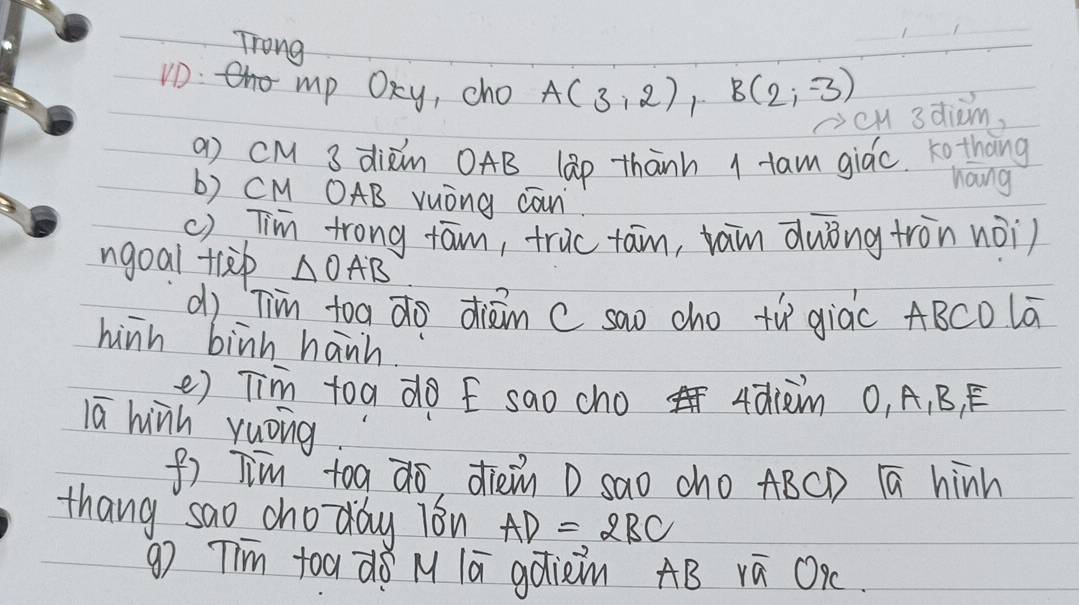 Trong
VD: Cho mp Oxy, cho A(3;2), B(2;-3)
→ CM 3 điểm
a) CM 3 điểm OAB lập thành 1 tam giác. ko thẳng
hàng
b) CM OAB vuông cân.
c) Tìm trong tâm, trực tâm, tâm đường tròn nội)
ngoại tiếp ΔOAB
d) Tìm toạ độ điểm C sao cho tứ giác ABCO là
hình bình hành.
e) Tìm toạ độ E sao cho 4 điểm O, A, B, E
là hình vuông.
f) Tìm toạ độ điểm D sao cho ABCD là hình
thang sao cho đáy lớn AD = 2BC
g) Tìm toạ độ M là gđiểm AB và Ox.